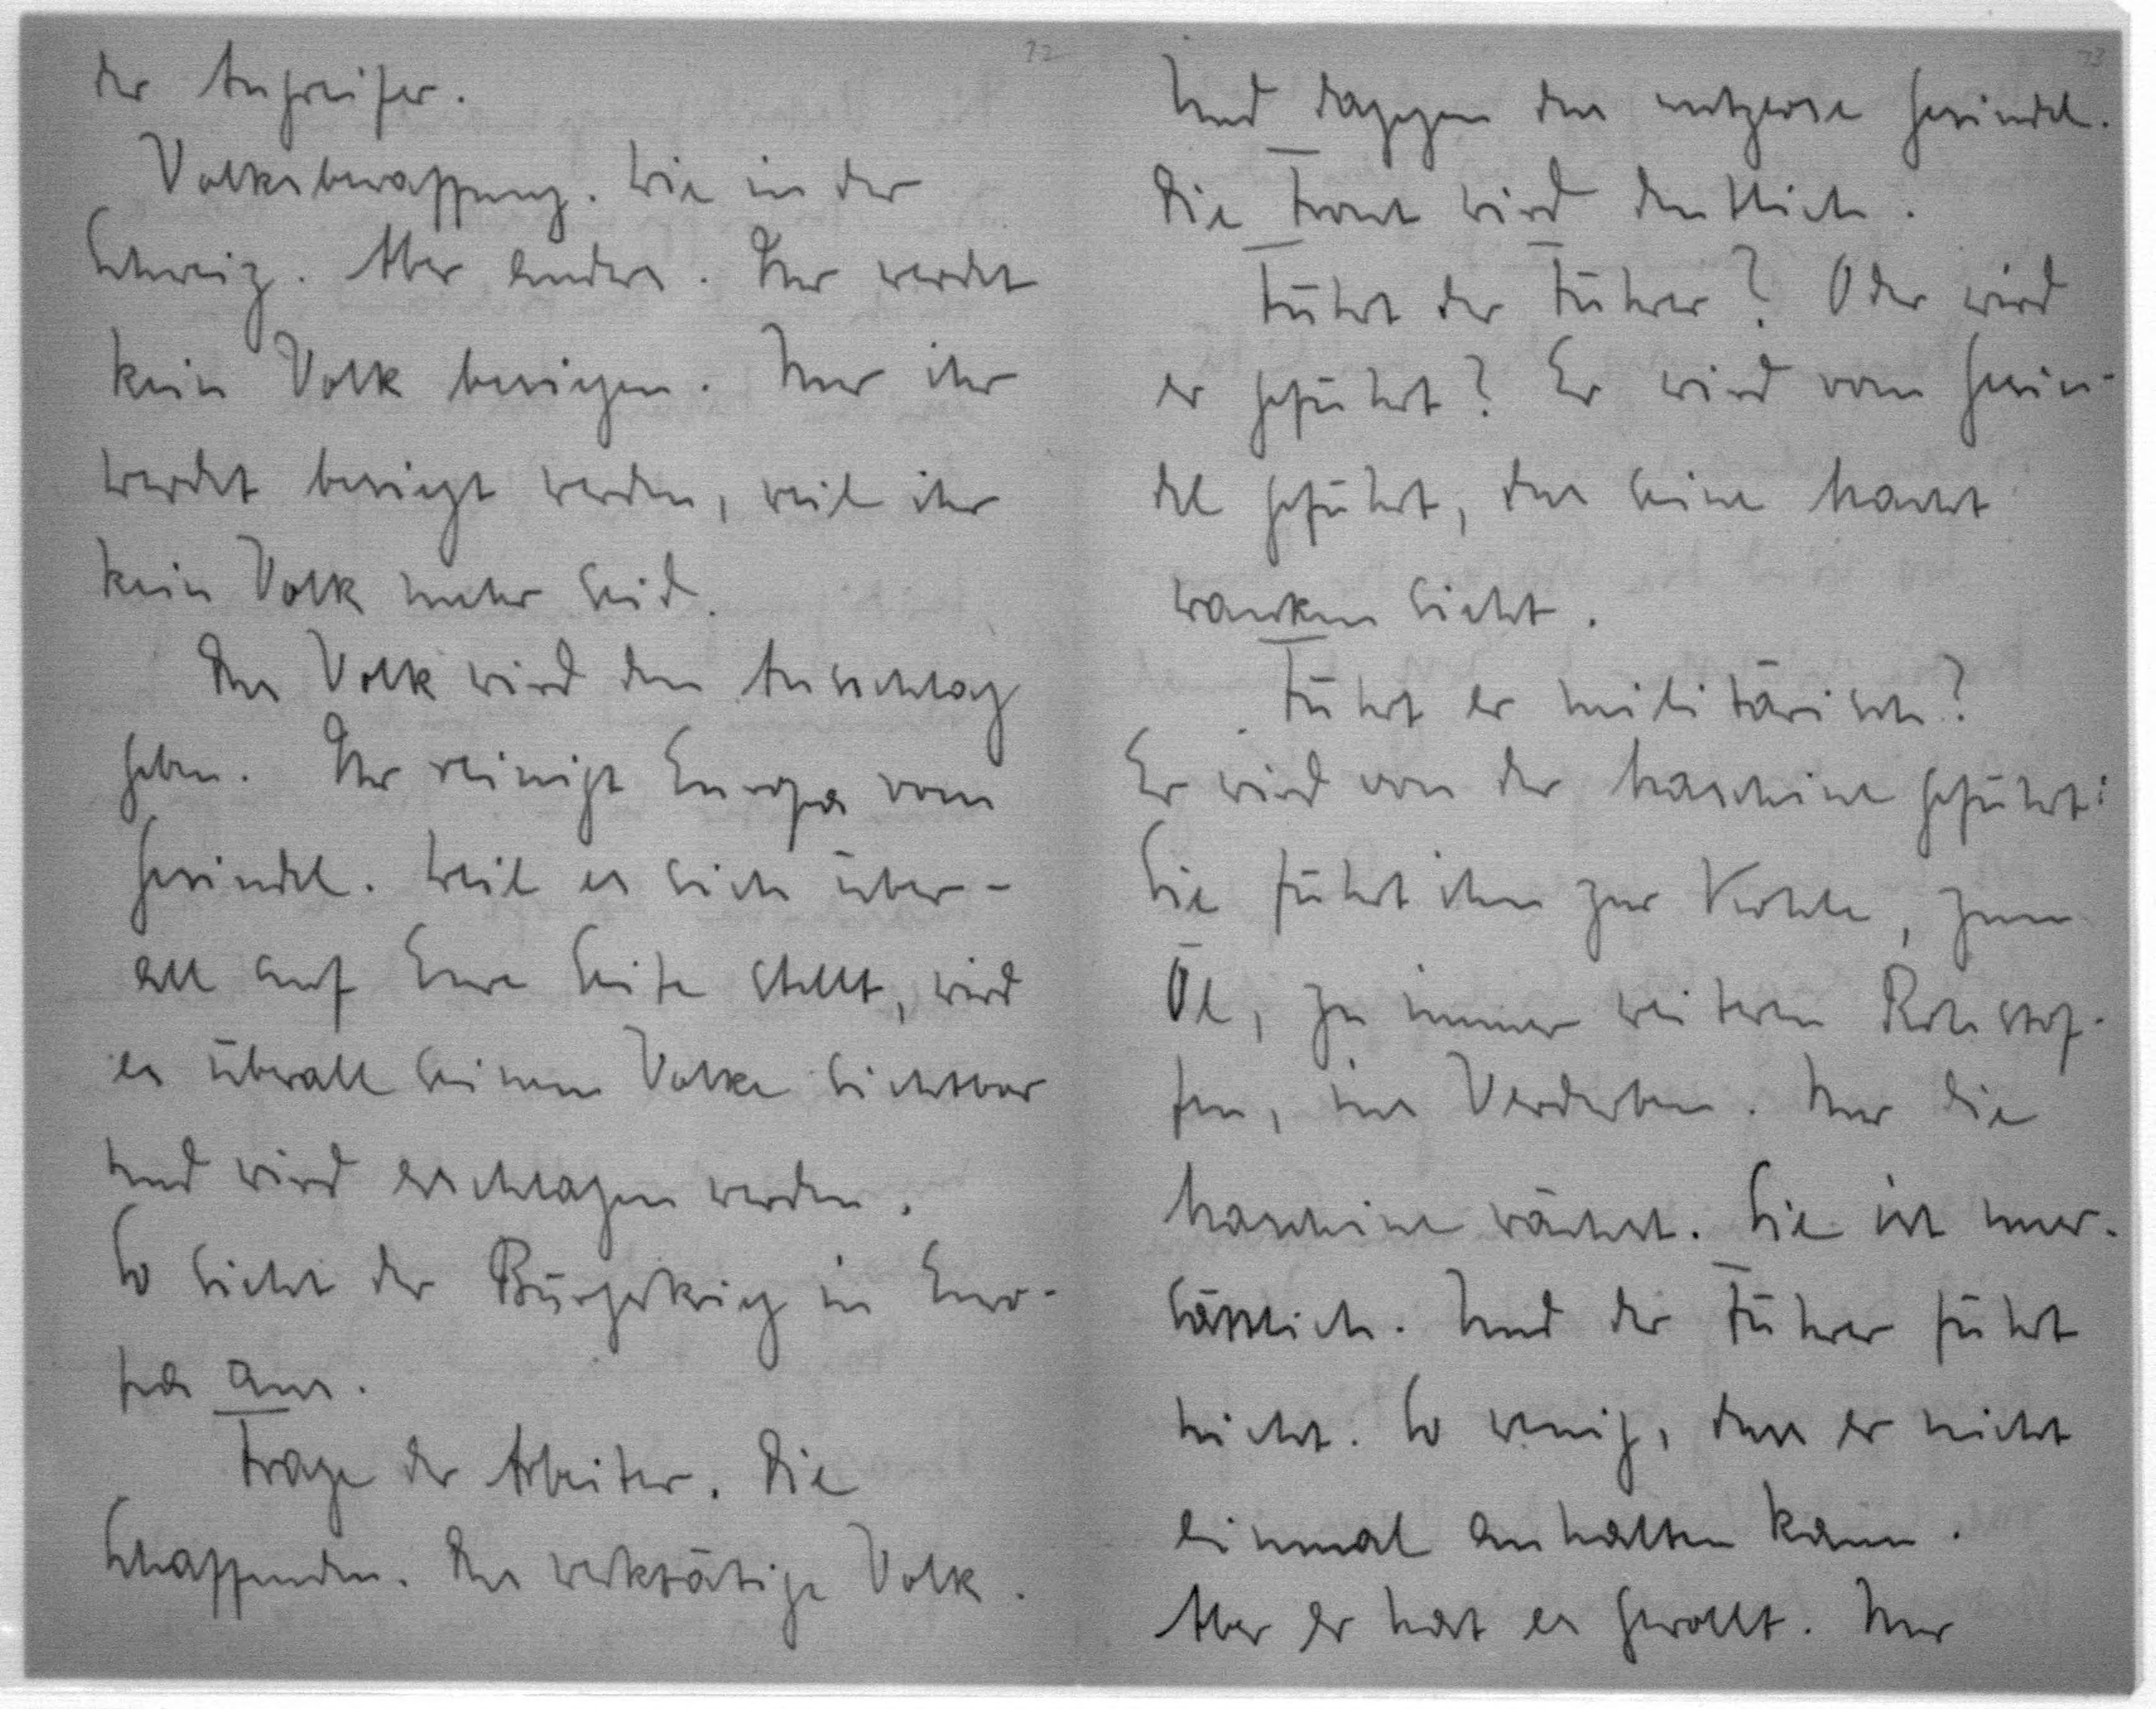 72
der Angreifer.
Volksbewaffnung. Wie in der
Schweiz. Aber anders. Ihr werdet
kein Volk besiegen. Nur ihr
werdet besiegt werden, weil ihr
kein Volk mehr seid.
Das Volk wird den Ausschlag
geben. Ihr reinigt Europa vom
Gesindel. Weil es sich über-
all auf Eure Seite stellt, wird
es überall seinem Volke sichtbar
und wird erschlagen werden.
So sieht der Bürgerkrieg in Euro-
pa aus.
Frage der Arbeiter. Die
Schaffenden. Das werktätige Volk.
73
Und dagegen das nutzlose Gesindel.
Die Front wird deutlich.
Führt der Führer? Oder wird
er geführt? Er wird vom Gesin-
del geführt, das seine Macht
wanken sieht.
Führt er militärisch?
Er wird von der Maschine geführt:
Sie führt ihn zur Kohle, zum
Öl, zu immer weiteren Rohstof-
fen, ins Verderben. Nur die
Maschine wächst. Sie ist uner-
sättlich. Und der Führer führt
nicht. So wenig, dass er nicht
einmal anhalten kann.
Aber er hat es gewollt. Nur